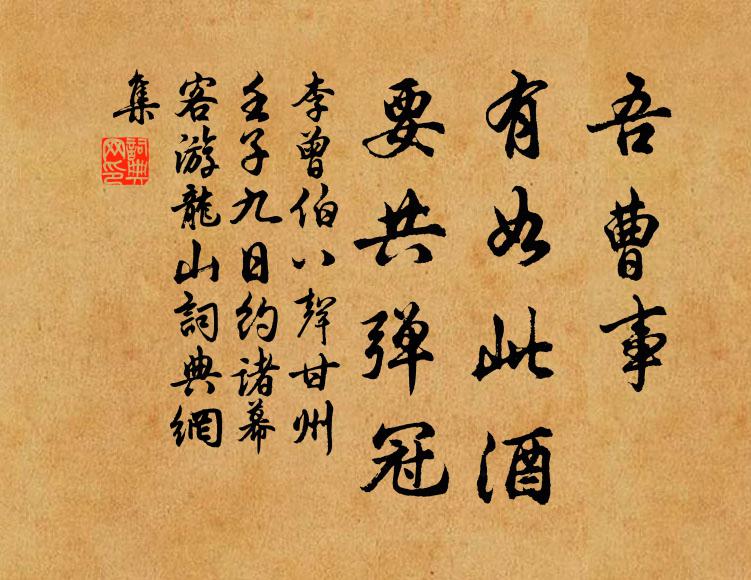 吾曹事
有如此酒
要共弹冠
李曾伯八聲甘州
壬子九日約諸幕
客游龍山詞典網
集
詞典
网印